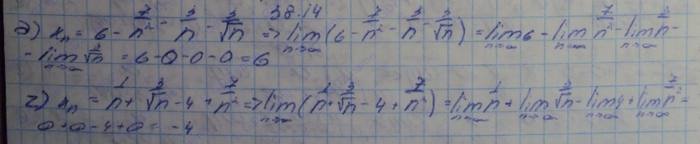 38.14
д) xₙ = 6 - 7/n² - 3/n - 3/√n => lim n→∞ (6 - 7/n² - 3/n - 3/√n) = lim n→∞ 6 - lim n→∞ 7/n² - lim n→∞ 3/n -
- lim n→∞ 3/√n = 6-0-0-0 = 6
г) xₙ = 1/n + 3/√n - 4 + 7/n² => lim n→∞ (1/n + 3/√n - 4 + 7/n²) = lim n→∞ 1/n + lim n→∞ 3/√n - lim n→∞ 4 + lim n→∞ 7/n² =
0+0-4+0 = -4